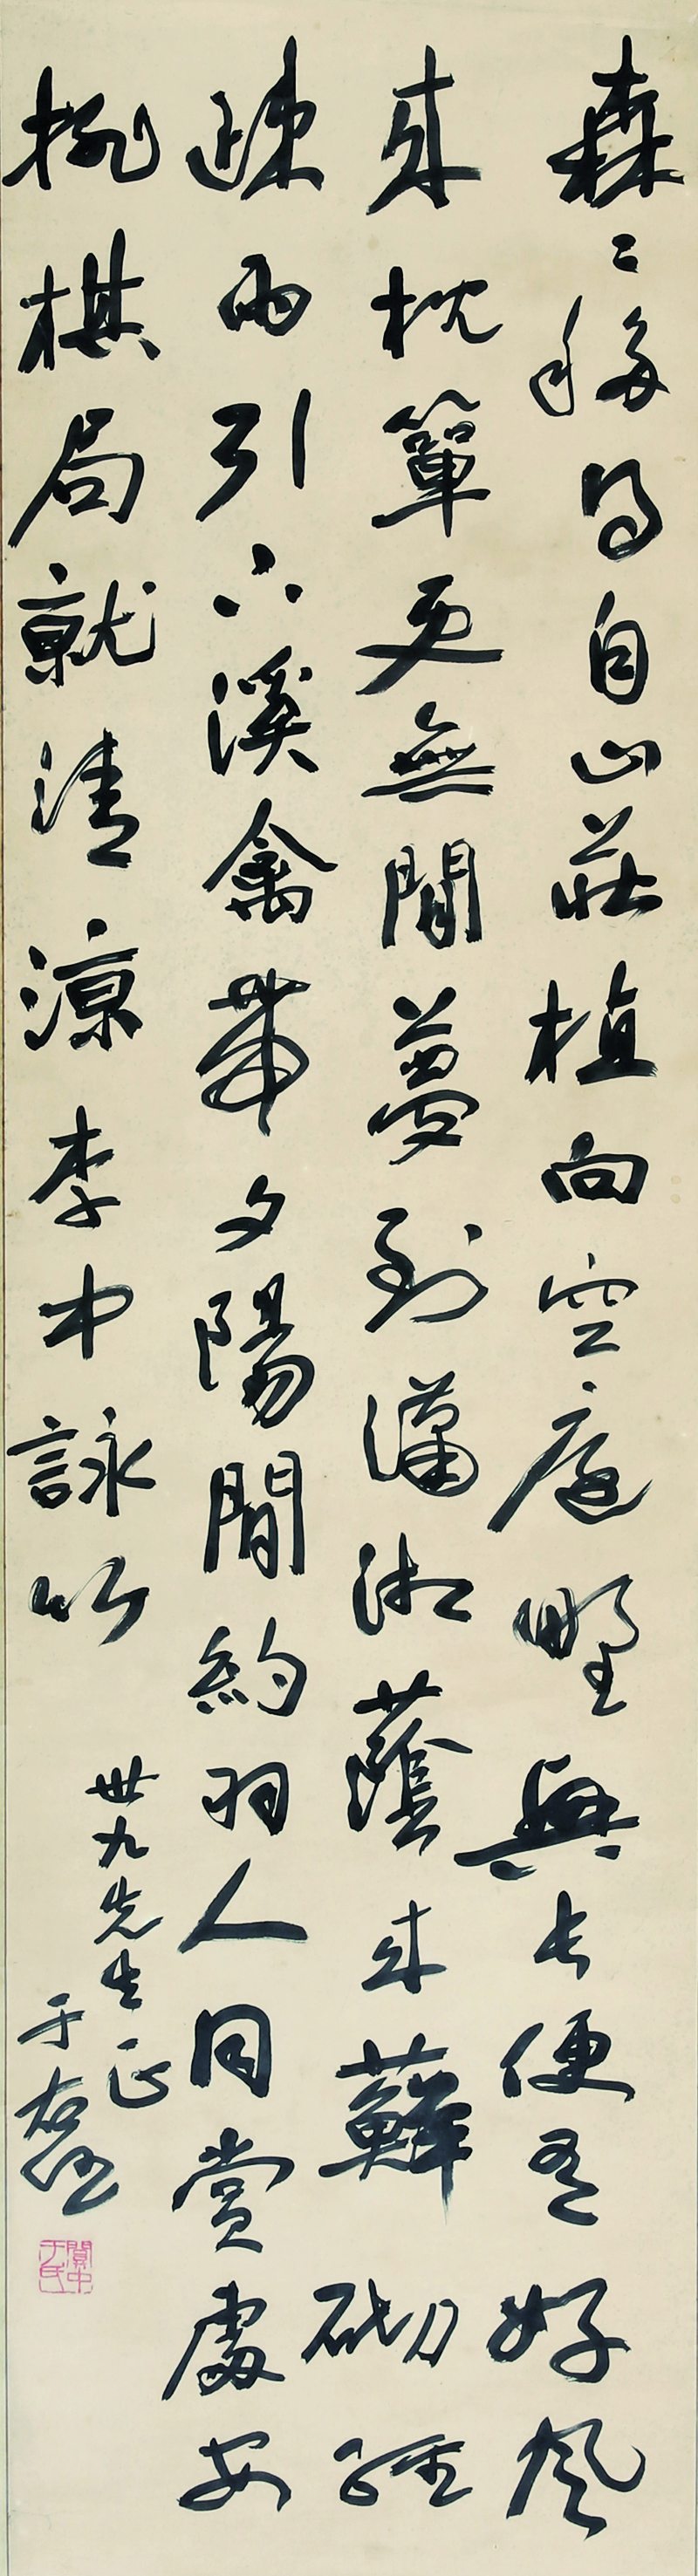 森〻移得自山莊植向空庭野興長便有好風
來枕簟更無閒夢到瀟湘蔭來蘚砌經
疎雨引下溪禽帶夕陽閒約羽人同賞處安
排棋局就清涼李中詠竹
世九先生正
于右任
關中于氏